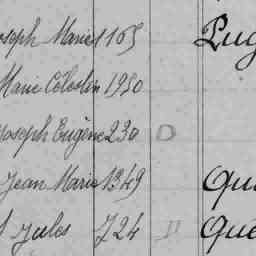 Joseph Marie 1165 Pug
Marie Célestin 1950
Joseph Eugène 230 D
Jean Marie 1349 Qu
Jules 724 D Que